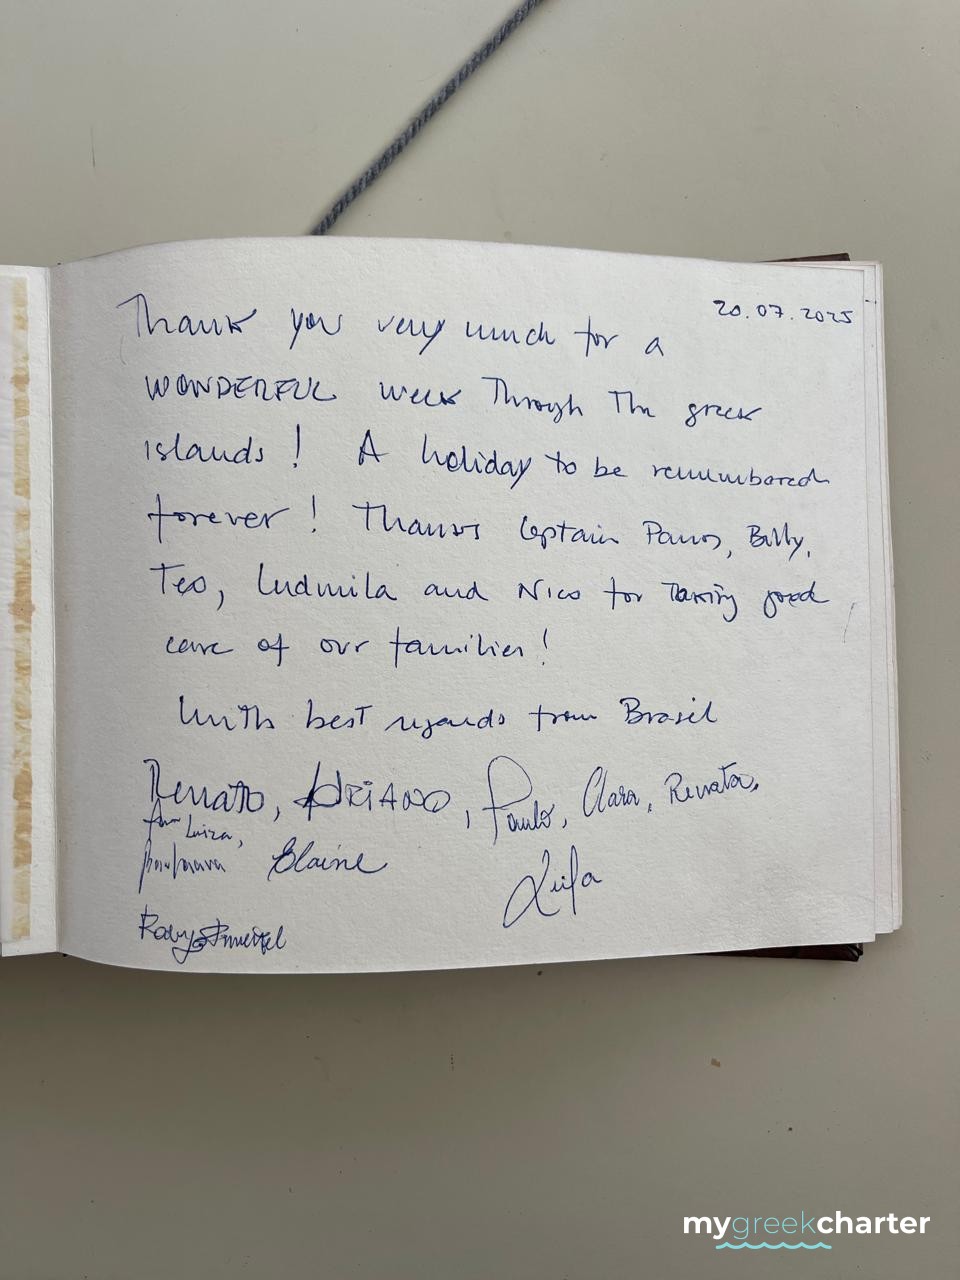 20.07.2025
Thank you very much for a
WONDERFUL week through the greek
islands! A holiday to be remembered
forever! Thanks Captain Panos, Billy,
Teo, Ludmila and Nico for taking good
care of our families!
With best regards from Brasil
Renato, ADRIANO, Paulo, Clara, Renata,
Luiza,
Elaine